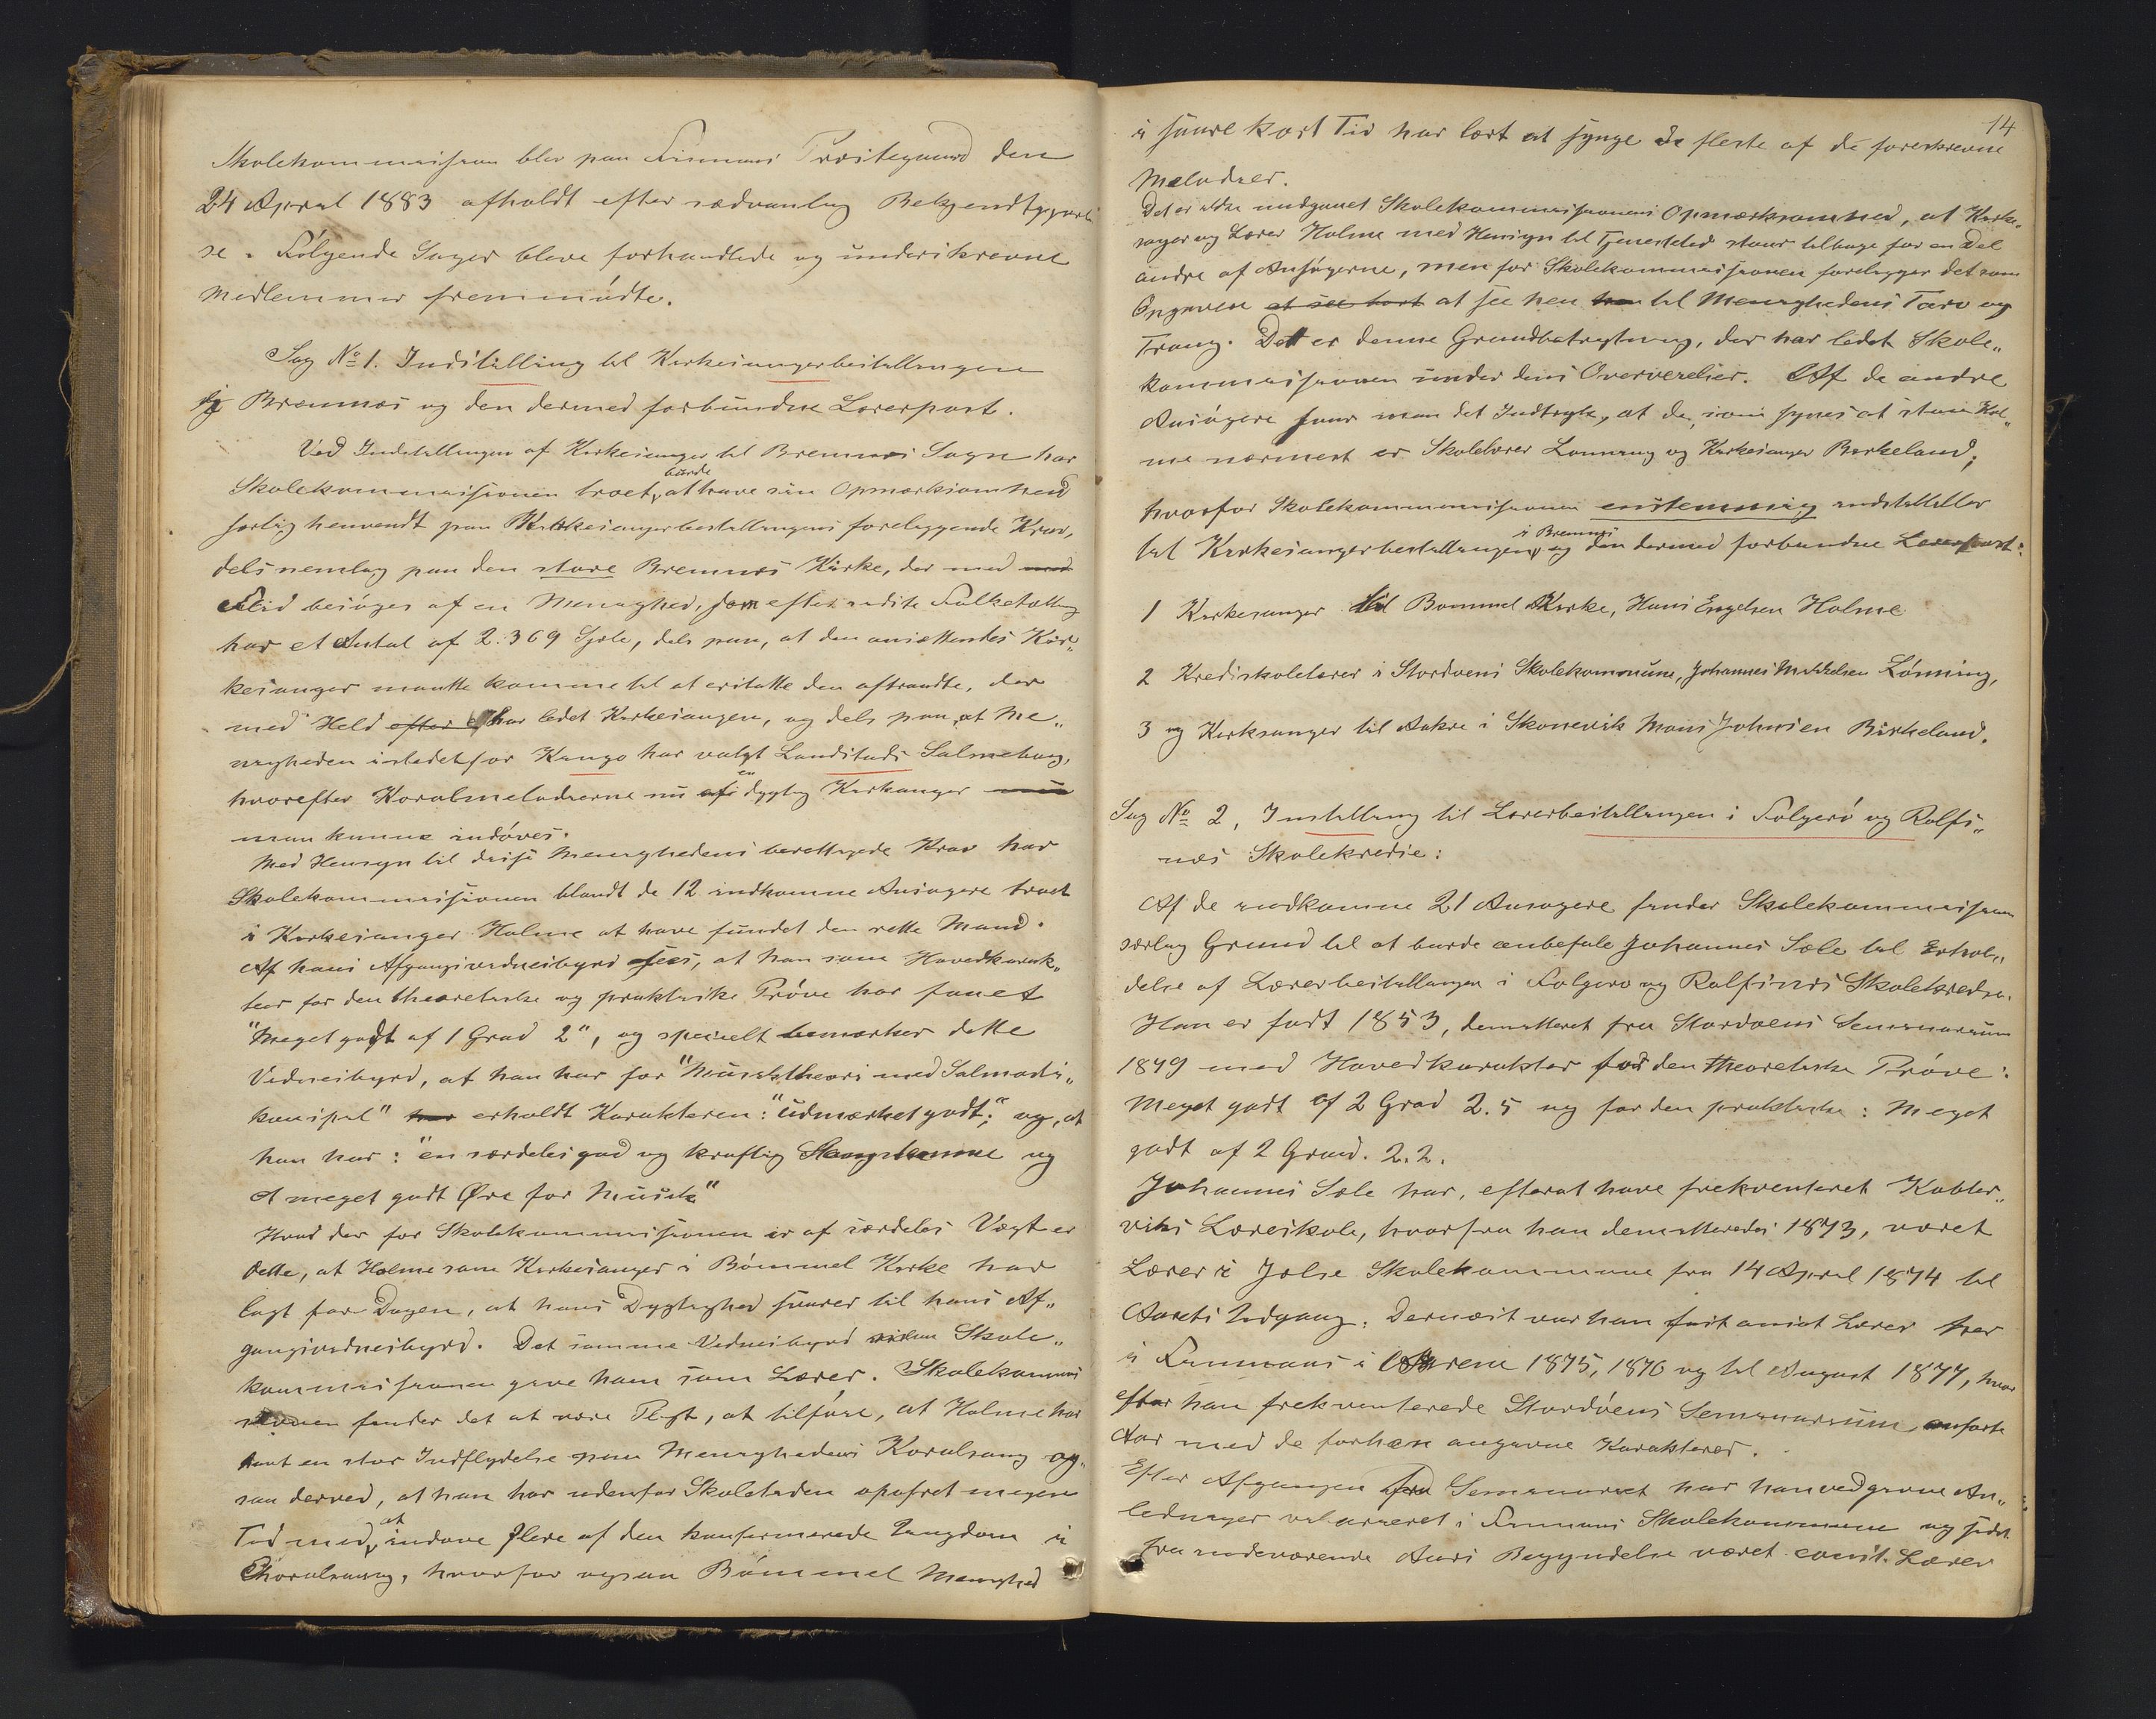 Skolekommission blev paa Finnaas Præstegaard den
24 April 1883 afholdt efter sædvanlig Bekjendtgjørel
se. Følgende Sager bleve forhandlede og underskrevne
Medlemmer fremmødte.
Sag No 1. Indstilling til Kirkesangerbestillingen
i Bremnæs og den dermed forbundne Lærerpost.
Ved Indstillingen af Kirkesanger til Bremnæs Sogn har
Skolekommissionen troet, burde at have sin Opmærksomhed
særlig henvendt paa Kirkesangerbestillingens foreliggende Krav,
dels nemlig paa den store Bremnæs Kirke, der med
Flid besøges af en Menighed, som efter sidste Folketælling
har et Antal af 2.369 Sjæle, dels paa, at den ansættendes Kir„
kesanger maatte komme til at erstatte den aftraadte, der
med Held efter har ledet Kirkesangen, og dels paa, at Me„
nigheden istedetfor Kingo har valgt Landstads Salmebog,
hvorefter Koralmelodierne nu af en dygtig Kirksanger
man kunne indøves.
Med Hensyn til disse Menighedens berettigede Krav har
Skolekommissionen blandt de 12 indkomne Ansøgere troet
i Kirkesanger Holme at have fundet den rette Mand.
Af hans Afgangsvidnesbyrd sees, at han som Hovedkarak„
ter for den theoretiske og praktiske Prøve har faaet
"Meget godt af 1 Grad 2", og specielt bemærker dette
Vidnesbyrd, at han har for "Musiktheori med Salmodi„
konspil" har erholdt Karakteren: "Udmærket godt;" og, at
han har: "en særdeles god og kraftig Sangstemme og
et meget godt Øre for Musik"
Hvad der for Skolekommissionen er af særdeles Vægt er
dette, at Holme som Kirkesanger i Bömmel Kirke har
lagt for Dagen, at hans Dygtighed svarer til hans Af„
gangsvidnesbyrd. Det samme Vidnesbyrd vil Skole„
kommissionen give ham som Lærer. Skolekommis
sionen finder det at være Pligt, at tilføre, at Holme har
havt en stor Indflydelse paa Menighedens Koralsang og„
saa derved, at han har udenfor Skoletiden opofret megen
Tid med, at indøve flere af den konfirmerede Ungdom i
Choralsang, hvorfor ogsaa Bömmel Menighed
14
i svare kort Tid har lært at synge de fleste af de foreskrevne
Melodier.
Det er ikke undgaaet Skolekommissionens Opmærksomhed, at Kirke„
sanger og Lærer Holme med Hensyn til Tjenestetid staar tilbage for en Del
andre af Ansøgerne, men for Skolekommissionen foreligger det som
Opgaven at see bort at see hen til Menighedens Tarv og
Trang. Det er denne Grundbetragtning, der har ledet Skole„
kommissionen under dens Overveielser. Af de andre
Ansøgere faar man det Indtryk, at de, som synes at staa Hol„
me nærmest er Skolelærer Lønning og Kirkesanger Birkeland;
hvorfor Skolekommissionen enstemmig indstiller
til Kirkesangerbestillingen i Bremnæs og den dermed forbundne Lærerpost:
1 Kirkesanger til Bommel Kirke, Hans Engelsen Holme
2 Kredsskolelærer i Stordøens Skolekommune, Johannes Mikkelsen Lönning,
3 og Kirksanger til Aakre i Skonevik Mons Johnsen Birkeland.
Sag No 2, Instilling til Lærerbestillingen i Folgerö og Rolfs„
næs Skolekredse:
Af de indkomne 21 Ansøgere finder Skolekommission
særlig Grund til at burde anbefale Johannes Sæle til Erhol„
delse af Lærerbestillingen i Folgerø og Rolfsnæs Skolekredse.
Han er født 1853, demitteret fra Stordøens Seminarium
1879 med Hovedkarakter for den theoretiske Prøve:
Meget godt af 2 Grad 2.5 og for den praktiske: Meget
godt af 2 Grad. 2.2.
Johannes Sæle har, efterat have frekventeret Kobber„
viks Lærerskole, hvorfra han demitteredes 1873, været
Lærer i Jølse Skolekommune fra 14 April 1874 til
Aarets Udgang. Dernæst var han fast ansat Lærer her
i Finnaas i Aarene 1875, 1876 og til August 1877, hvor
efter han frekventerede Stordøens Seminarium, anførte
Aar med de forhen angivne Karakterer.
Efter Afgangen fra Seminariet har han ved givne An„
ledninger vikarieret i Finnaas Skolekommune og sidst
fra indeværende Aars Begyndelse været const. Lærer